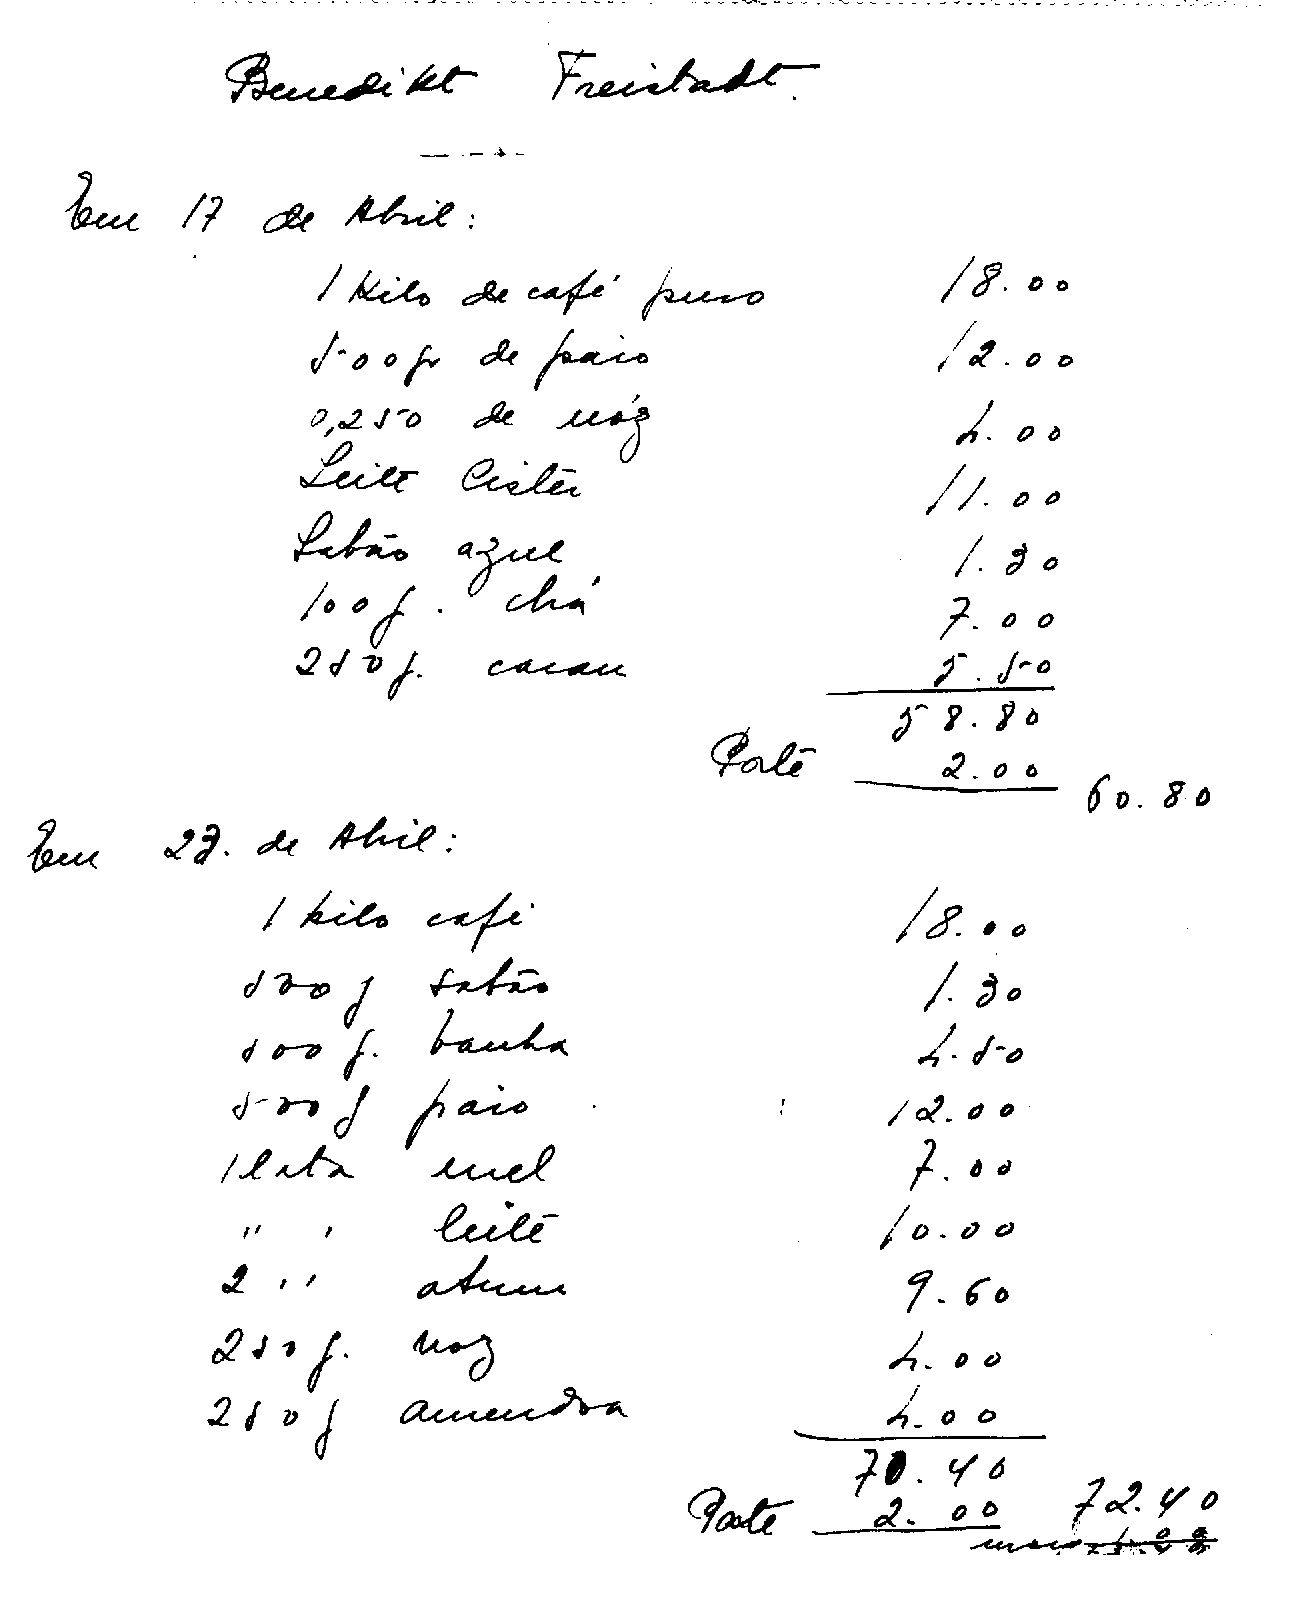 Benedikt Freistadt.
Em 17 de Abril:
1 Kilo de café puro 18.00
500gr de paio 12.00
0,250 de nóz 4.00
Leite Cister 11.00
Sabão azul 1.30
100g. chá 7.00
250g. cacau 5.50
58.80
Porte 2.00 60.80
Em 23. de Abril:
1 kilo café 18.00
500 g sabão 1.30
500 g. banha 4.50
500 g paio 12.00
1 lata mel 7.00
" " leite 10.00
2 " atum 9.60
250 g. noz 4.00
250 g amendoa 4.00
70.40
Porte 2.00 72.40